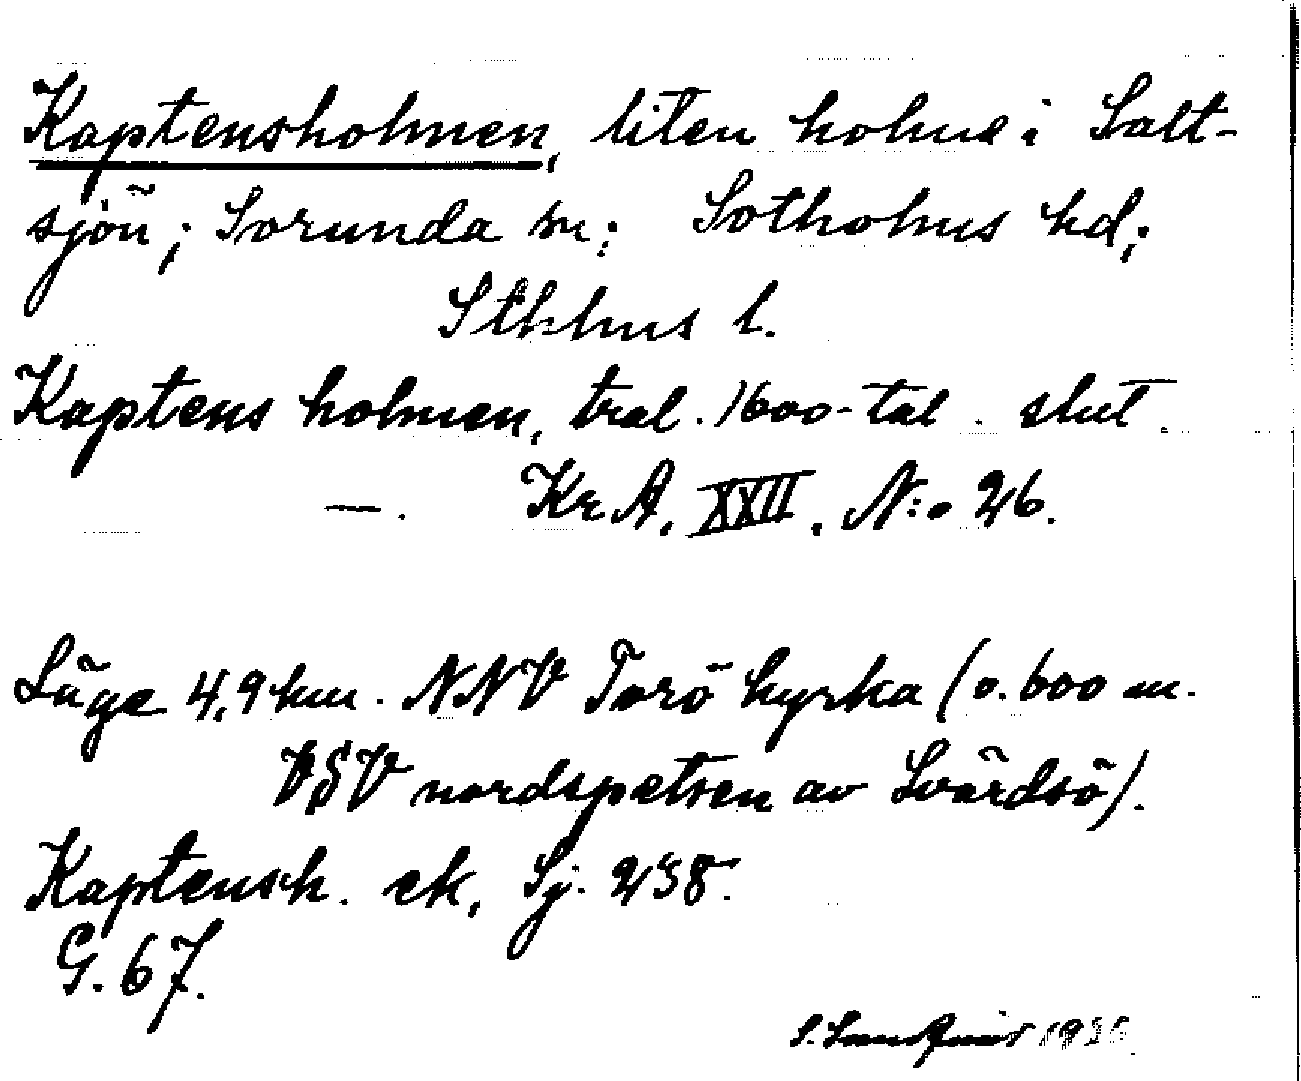 Kaptensholmen, liten holme i Salt-
sjön; Sorunda sn; Sotholms hd;
Sthlms l.
Kaptens holmen, tral. 1600-tal. slut.
—. KrA. XXII. N:o 26.
Läge 4,9 km. NNV Torö kyrka (o. 600 m.
VSV nordspetsen av Svärdsö).
Kaptensh. ek, Sj. 238.
G. 67.